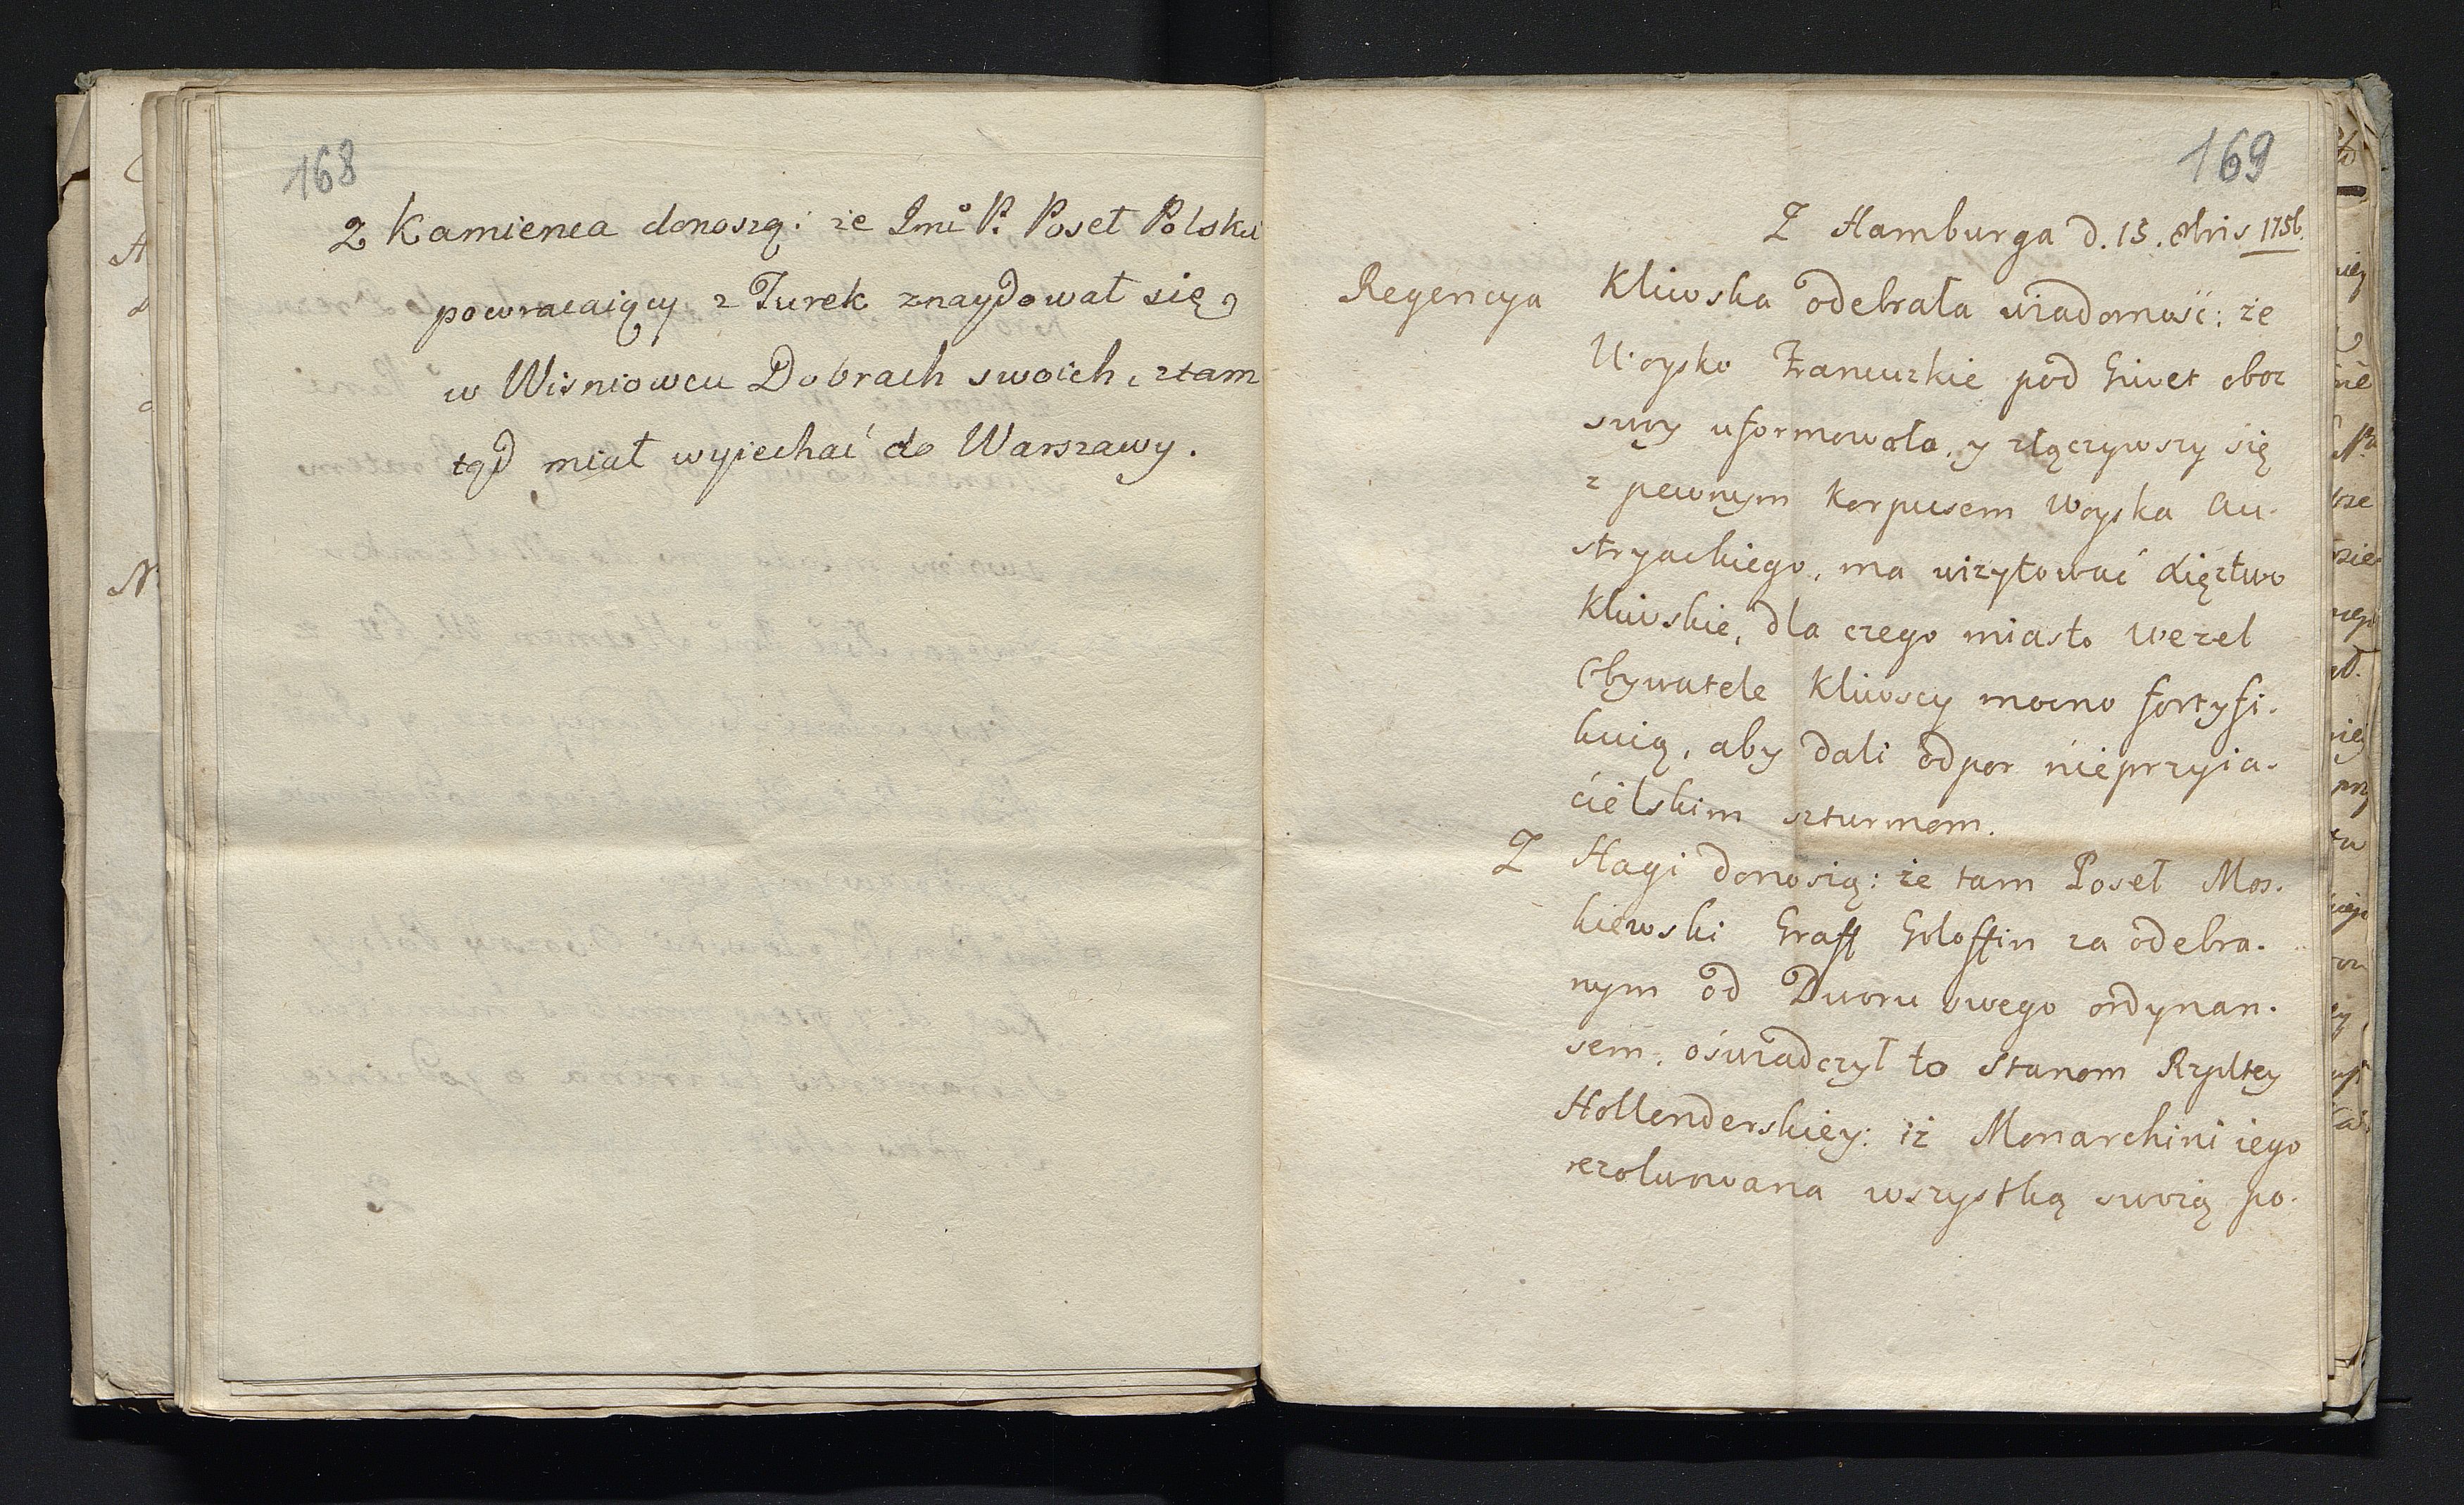 168
Z Kamienca donoszą: że Jmć P. Poseł Polski
powracaiący z Turek znaydował się
w Wisniowcu Dobrach swoich, ztam
tąd miał wyiechać do Warszawy.
169
Z Hamburga d. 15. 8bris 1756.
Regencya Kliwska odebrała wiadomość: że
Woysko Francuzkie pod Givet oboz
swoy uformowało, y złączywszy się
z pewnym korpusem Woyska Au-
stryackiego, ma wizytować Xięztwo
Kliwskie, dla czego miasto Wezel
Obywatele Kliwscy mocno fortyfi-
kuią, aby dali odpor nieprzyia-
cielskim szturmom.
Z Hagi donoszą: że tam Poseł Mos-
kiewski Graff Goloffin za odebra-
nym od Dworu swego ordynan-
sem, oświadczył to Stanom Rzpltey
Hollenderskiey: iż Monarchini iego
rezolwowana wszystką swoią po-